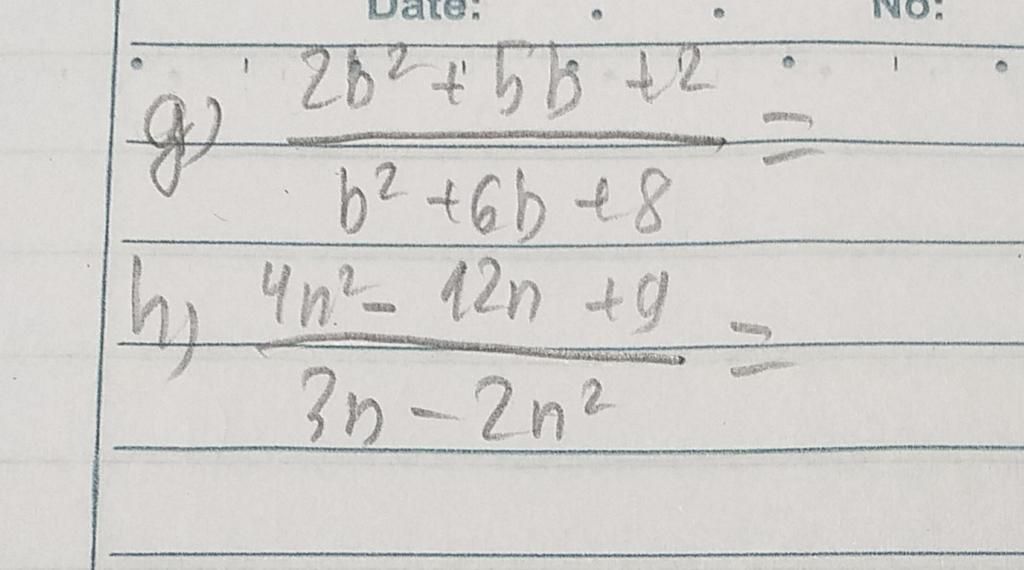 Date: No:
g) 2b² + 5b + 2 =
b² + 6b + 8
h) 4n² - 12n + 9 =
3n - 2n²